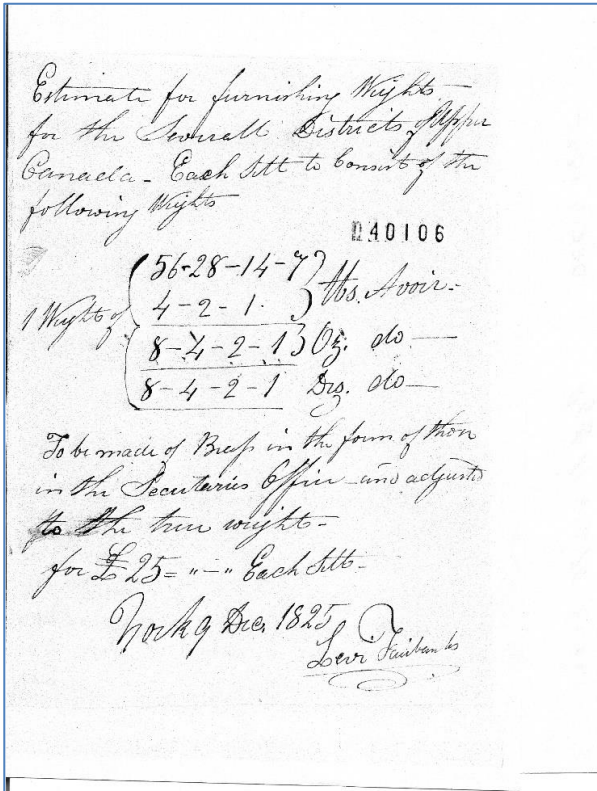 Estimate for furnishing Weights
for the Severall Districts of Upper
Canada - Each Sett to Consist of the
following Weights
D40106
56-28-14-7
4-2-1. lbs. Avoir.
1 Weight of
8-4-2-1 Oz. do
8-4-2-1 Drs. do
To be made of Brass in the form of those
in the Secretaries Office and adjusted
to the true weight -
for £25= "-" Each Sett -
York 9 Dec. 1825
Levi Fairbanks